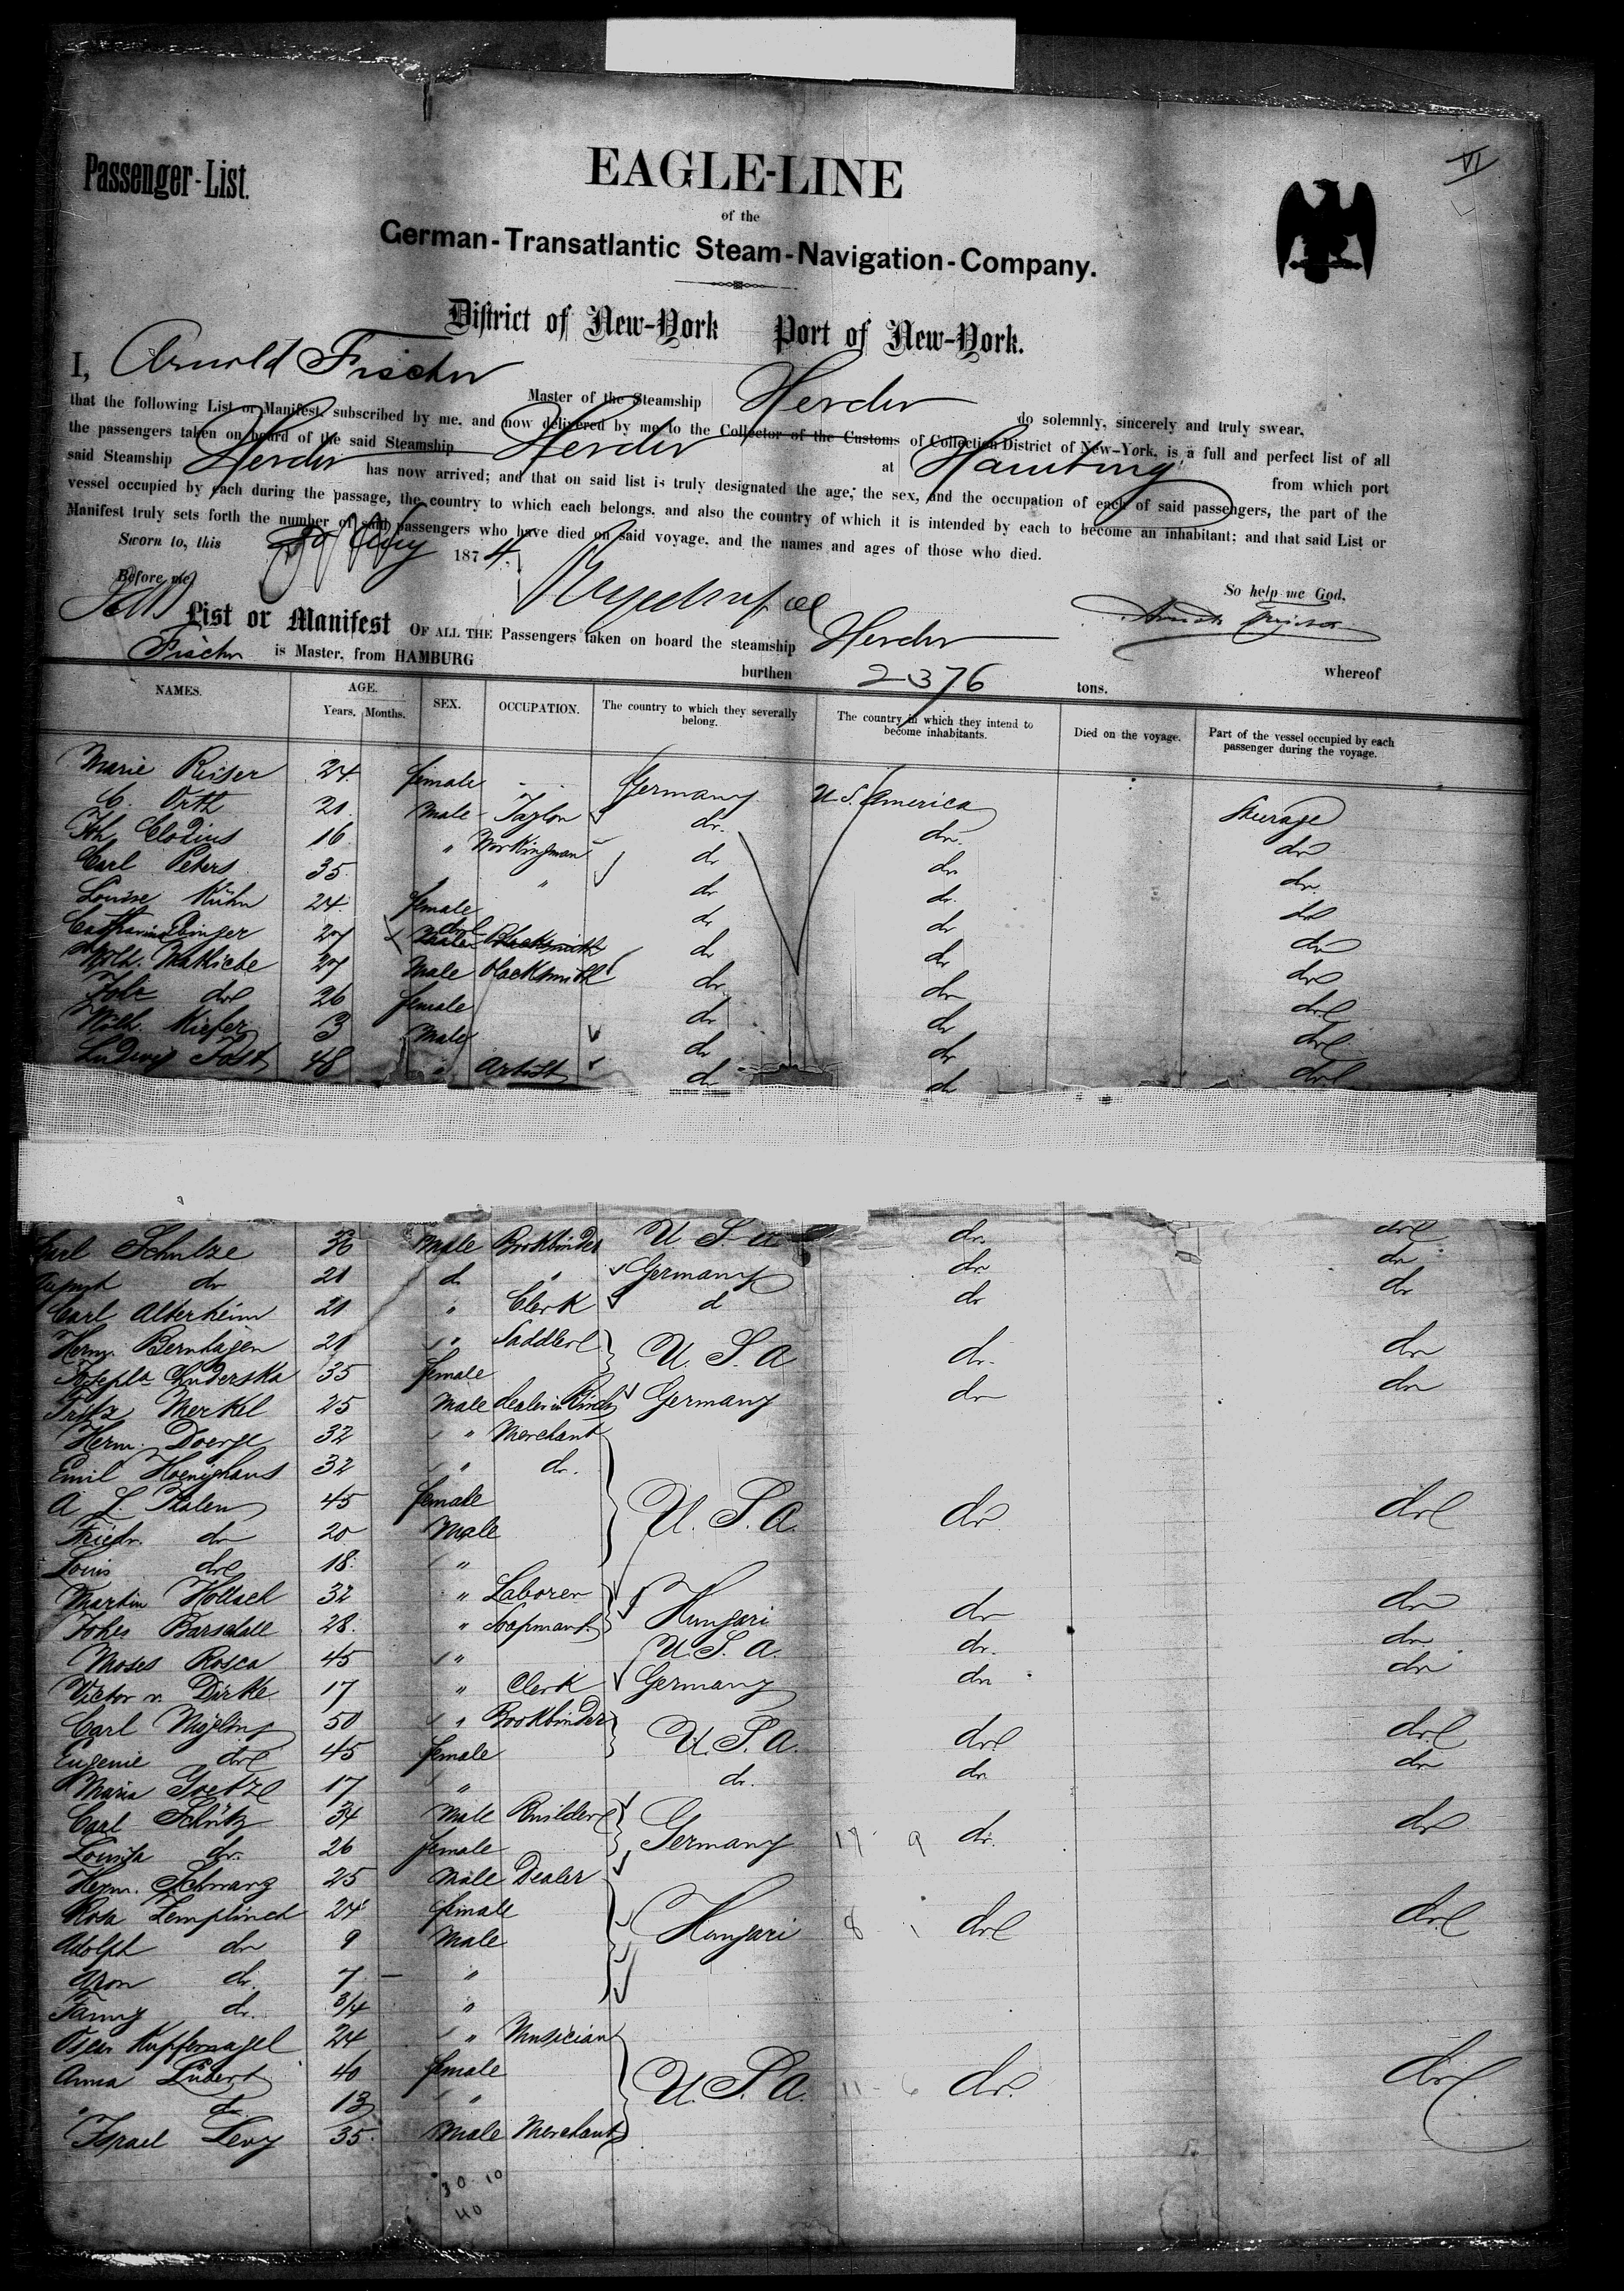 VI
Passenger-List.
EAGLE-LINE
of the
German-Transatlantic Steam-Navigation-Company.
District of New-York Port of New-York.
I, Arnold Fischer Master of the Steamship Herder do solemnly, sincerely and truly swear,
that the following List or Manifest, subscribed by me, and now delivered by me to the Collector of the Customs of Collection District of New-York, is a full and perfect list of all
the passengers taken on board of the said Steamship Herder at Hamburg from which port
said Steamship Herder has now arrived; and that on said list is truly designated the age, the sex, and the occupation of each of said passengers, the part of the
vessel occupied by each during the passage, the country to which each belongs, and also the country of which it is intended by each to become an inhabitant; and that said List or
Manifest truly sets forth the number of said passengers who have died on said voyage, and the names and ages of those who died.
Sworn to, this 1874.
So help me God,
Before me
List or Manifest OF ALL THE Passengers taken on board the steamship Herder whereof
Fischer is Master, from HAMBURG burthen 2376 tons.
NAMES. AGE. Years. Months. SEX. OCCUPATION. The country to which they severally belong. The country in which they intend to become inhabitants. Died on the voyage. Part of the vessel occupied by each passenger during the voyage.
Marie Reiser 24 female Germany U.S. America Steerage
C. Orth 21 Male Taylor do. do. do
Clodius 16 " Workingman do do do
Carl Peters 35 " do do do
Louise Kühn 24 female do do do
Catharina 27 do do do
27 Male blacksmith do do do
do 26 female do do do
Wilh. Kiefer 3 Male do do do
Ludwig Fast 48 " Artist do do do
Carl Schulze 36 Male Bookbinder U. S. A do. do
do 21 d " Germany do do
Carl Alterheim 21 " Clerk d do do
Herm. Bernhagen 21 " Saddler U. S. A do. do
Josepha 35 female
Fritz Merkel 25 Male dealer in Germany do do
Herm. Doerge 32 " Merchant
Emil Hoenighaus 32 " do.
A L. Thalen 45 female U. S. A. do do
Friedr. do 20 Male
Louis do 18 "
Martin Hollach 32 " Laborer Hungari do do
Johes Barschall 28. "
Moses Rosca 45 " U. S. A. do. do
Victor v. Dirke 17 " Clerk Germany do do
Carl 50 " Bookbinder U. S. A. do do
Eugenie do 45 female
Maria Goetze 17 " do. do do
Carl Schütz 34 Male Builder Germany 17 9 do. do
Louisa do. 26 female
Herm. Schwarz 25 Male Dealer
Rosa Templinch 24 female Hungari 8 1 do do
Adolph do 9 Male
Aron do. 7 "
Fanny do. 3/4 "
Oscar Kupfernagel 24 " Musician
Anna Lübert 40 female U. S. A. 11 - 6 do. do
" do 13 "
Israel Levy 35 Male Merchant
30 10
40